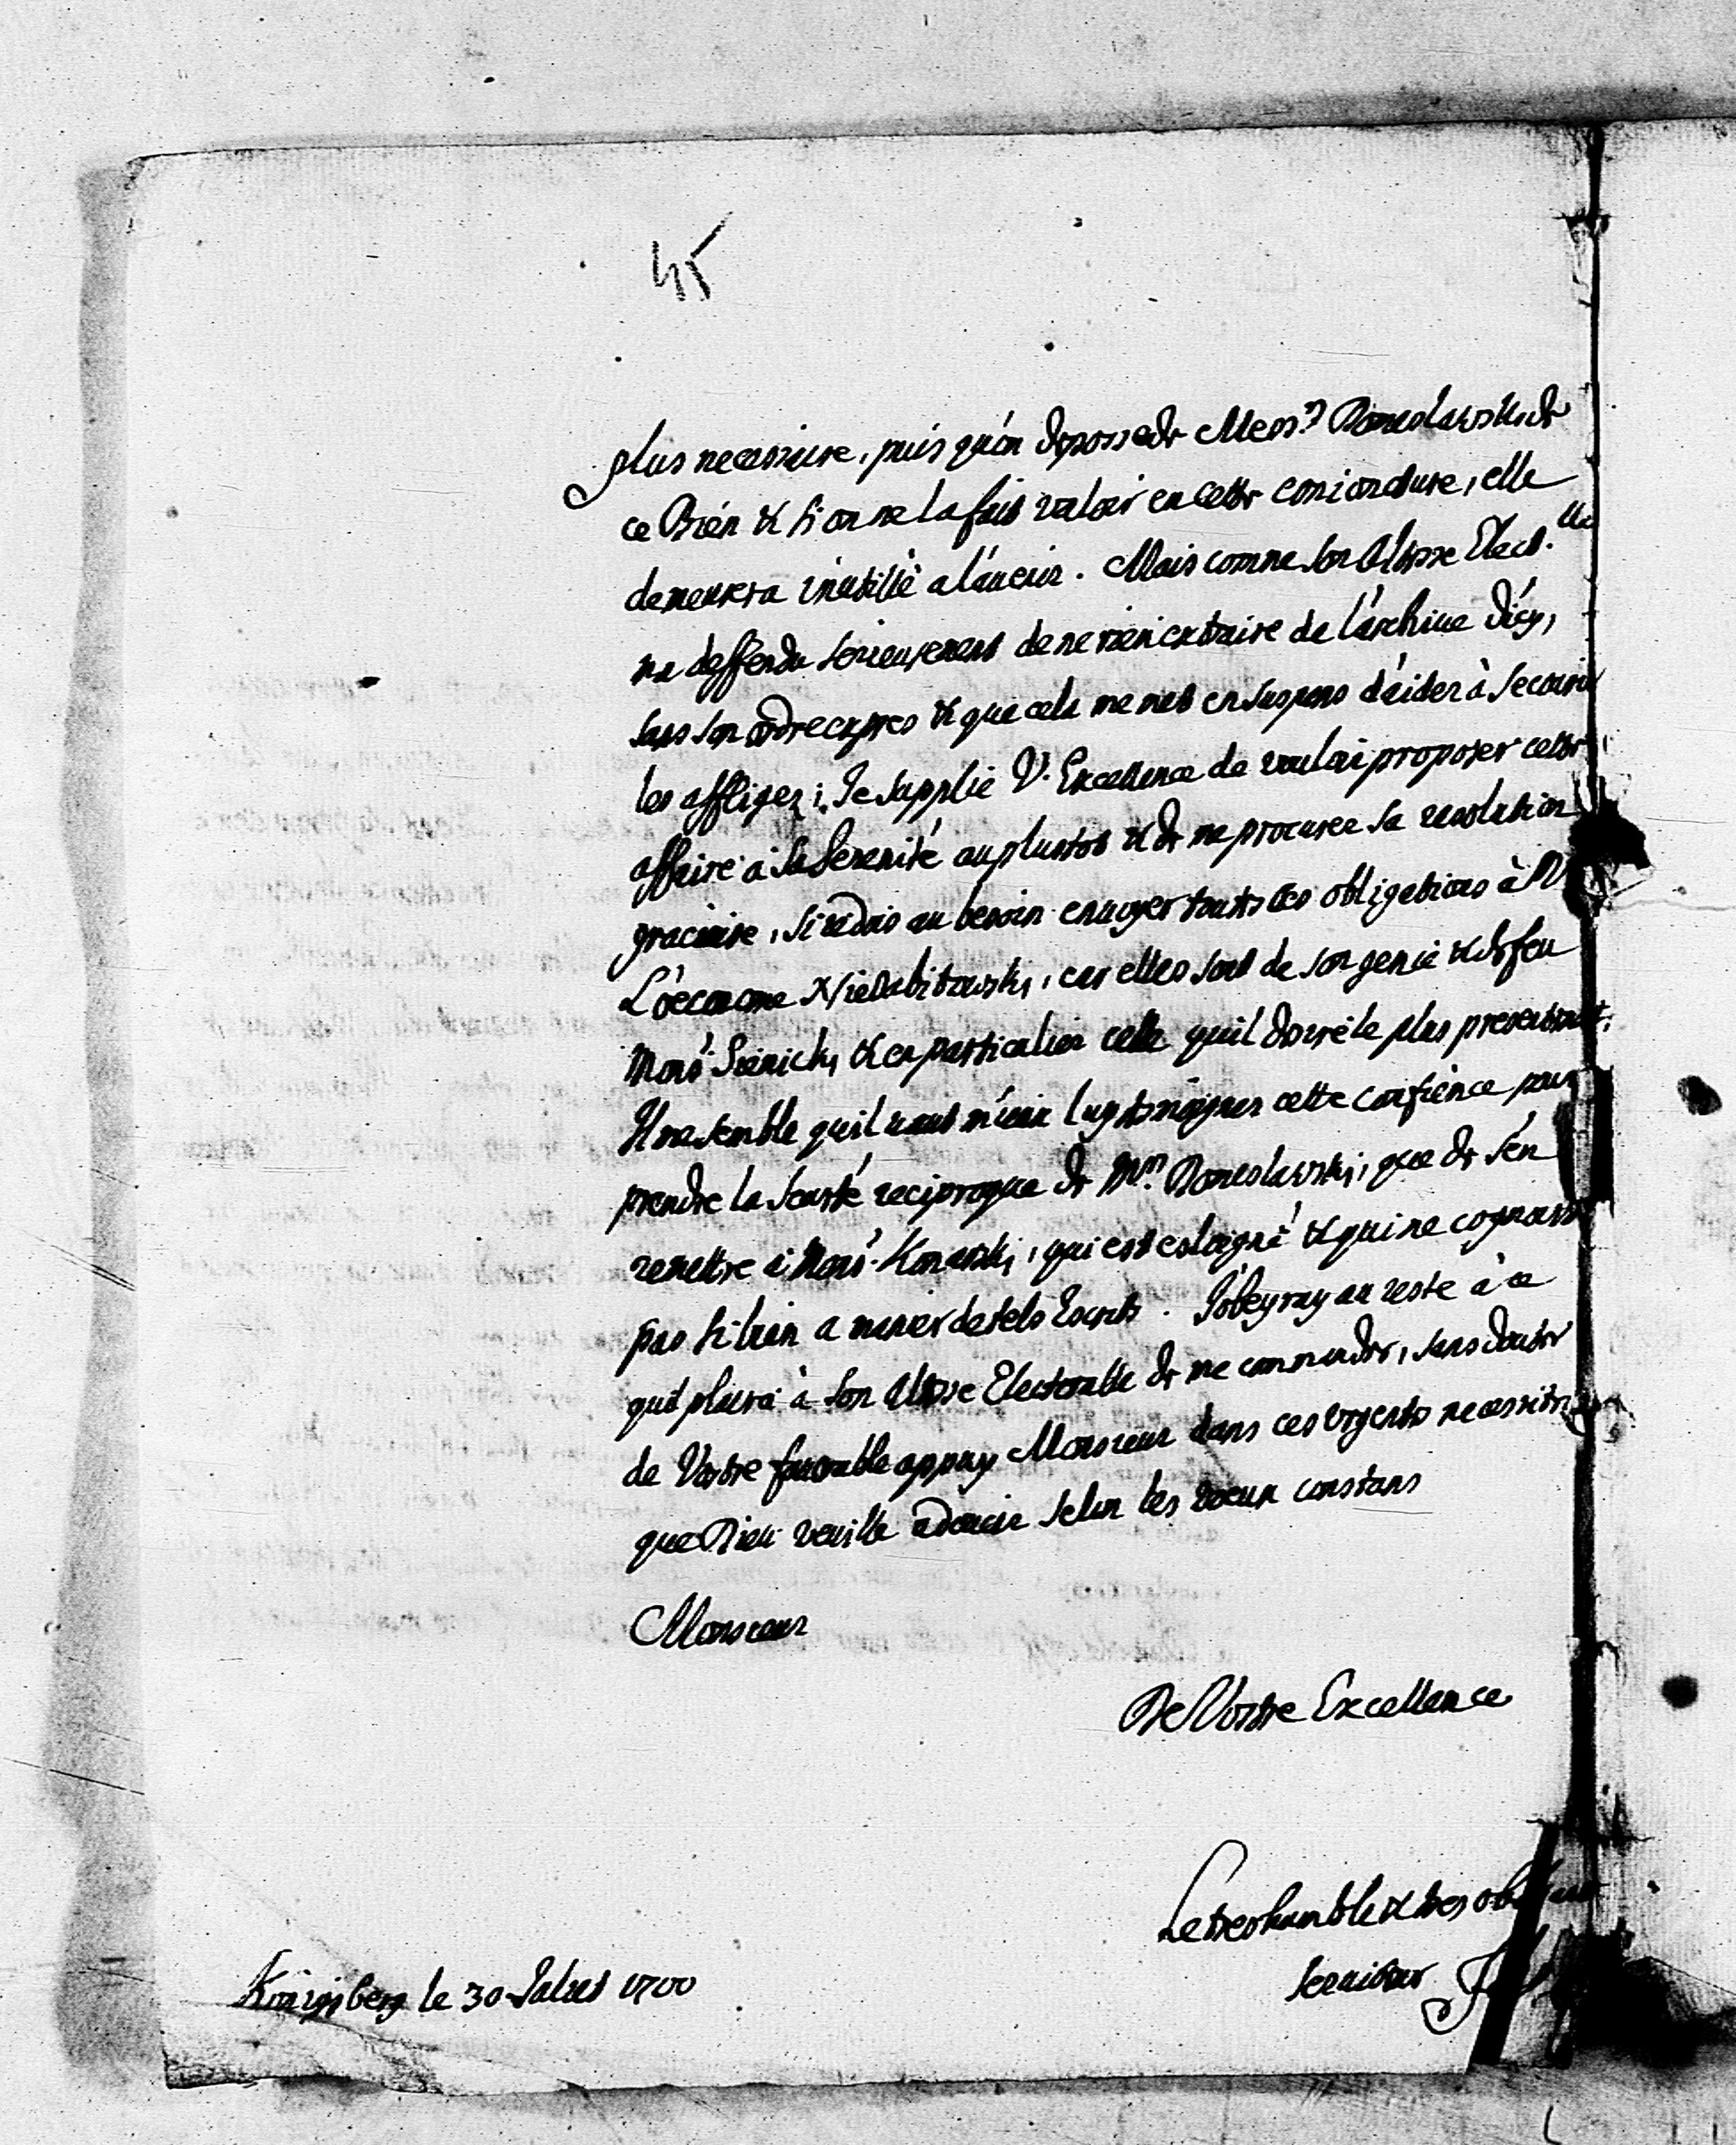 45
plus necessaire, puis qu'on depossede Mess.rs Doneslawski de
ce Bien & si on ne la fait valoir en cette conioncture, elle
demeurera inutile a l'avenir. Mais comme son Altesse Elect.lle
ma deffendu serieusement de ne rien extraire de l'archive d'icy,
sans son ordre expres & que cela me met en suspens d'aider à secourir
les affligez; Je supplie V. Excellence de vouloir proposer cette
affaire a sa Serenité au plustot & de me procurer sa resolution
gracieuse, si ie dois au besoin envoyer toutes ces obligations à M
L'oeconome Niedabitowski, car elles sont de son genie & de feu
Mons.r & en particulier celle qu'il donne le plus presentemt.
Il me semble qu'il vaut mieux luy temoigner cette confience pour
prendre la seurté reciproque de M.rs Doneslawski, que de s'en
remettre a Mons.r Konarski, qui est esloigné & qui ne cognoist
pas si bien a manier de tels Escrits. J'obeyray au reste à ce
quil plaira à Son Altesse Electoralle de me commander, sans douter
de Vostre favorable appuy Monsieur dans ces urgents necessitez
que Dieu veuille adoucir selon les voeux constans
Monsieur
De Vostre Excellence
Le tres humble & tres
serviteur
Königsberg le 30 1700